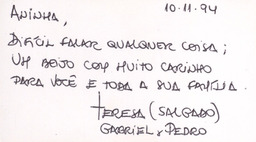 10.11.94
ANINHA,
DIFÍCIL FALAR QUALQUER COISA;
UM BEIJO COM MUITO CARINHO
PARA VOCÊ E TODA A SUA FAMÍLIA.
TERESA (SALGADO)
GABRIEL, PEDRO